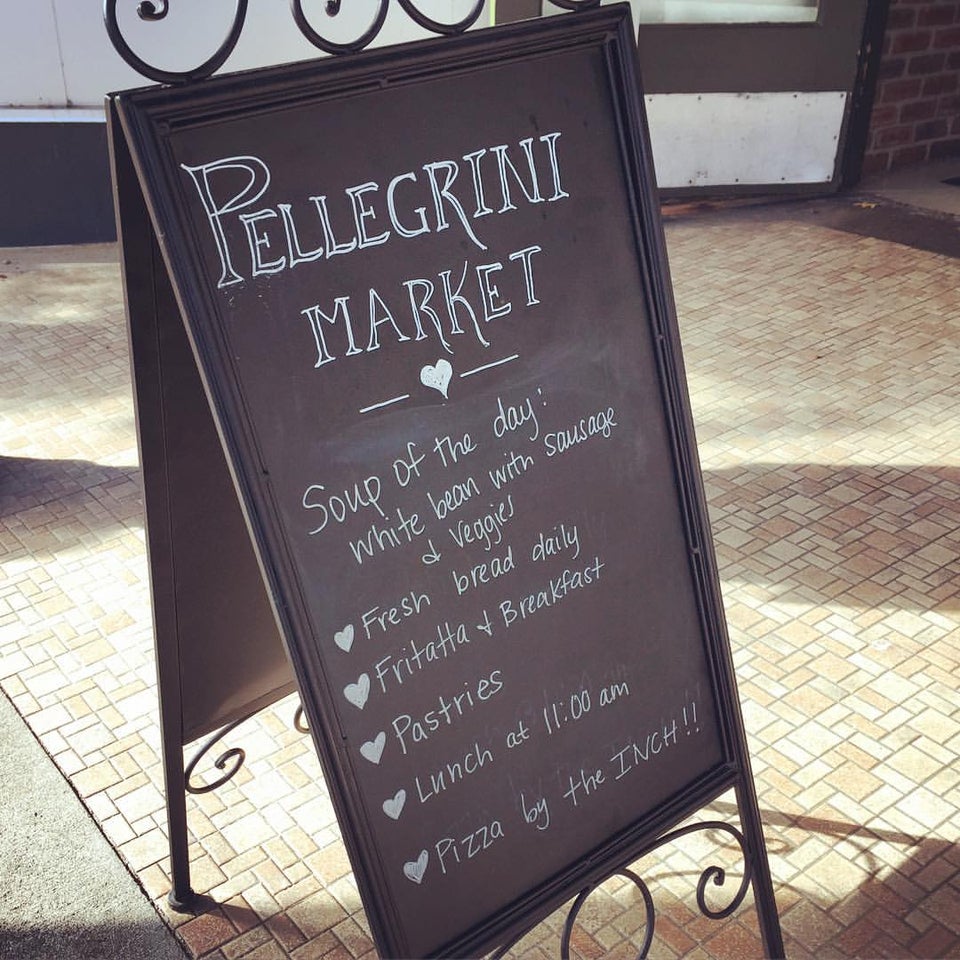 PELLEGRINI
MARKET
Soup of the day:
White bean with sausage
& Veggies
Fresh bread daily
Fritatta & Breakfast
Pastries
Lunch at 11:00 am
Pizza by the INCH!!